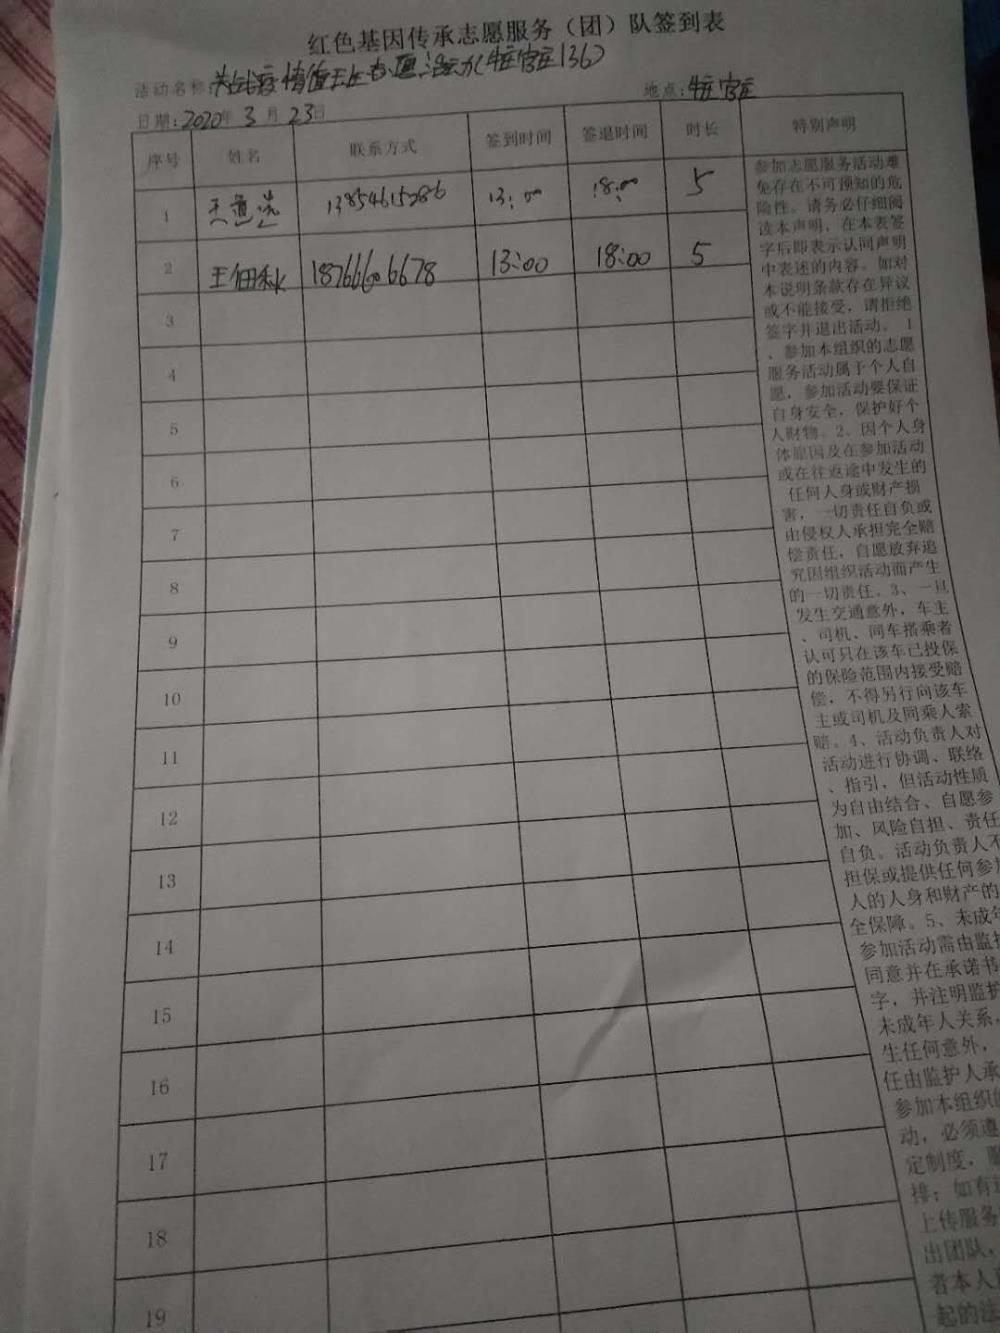 红色基因传承志愿服务（团）队签到表
活动名称 疫情值班志愿活动(
地点：官庄
日期：2020年3月23日
序号 姓名 联系方式 签到时间 签退时间 时长 特别声明
1 13854615286 13:00 18:00 5
2 王佃秋 18766606678 13:00 18:00 5
3
4
5
6
7
8
9
10
11
12
13
14
15
16
17
18
19
参加志愿服务活动难
免存在不可预知的危
险性。请务必仔细阅
读本声明，在本表签
字后即表示认同声明
中表述的内容。如对
本说明条款存在异议
或不能接受，请拒绝
签字并退出活动。 1
、参加本组织的志愿
服务活动属于个人自
愿，参加活动要保证
自身安全，保护好个
人财物。2、因个人身
体原因及在参加活动
或在往返途中发生的
任何人身或财产损
害，一切责任自负或
由侵权人承担完全赔
偿责任，自愿放弃追
究因组织活动而产生
的一切责任。3、一旦
发生交通意外，车主
、司机、同车搭乘者
认可只在该车已投保
的保险范围内接受赔
偿，不得另行向该车
主或司机及同乘人索
赔。4、活动负责人对
活动进行协调、联络
、指引，但活动性质
为自由结合、自愿参
加、风险自担、责任
自负。活动负责人不
担保或提供任何参加
人的人身和财产的
全保障。5、未成年
参加活动需由监护
同意并在承诺书
字，并注明监护
未成年人关系，
生任何意外，
任由监护人承
参加本组织的
动，必须遵
定制度，服
排；如有
上传服务
出团队，
者本人
起的法